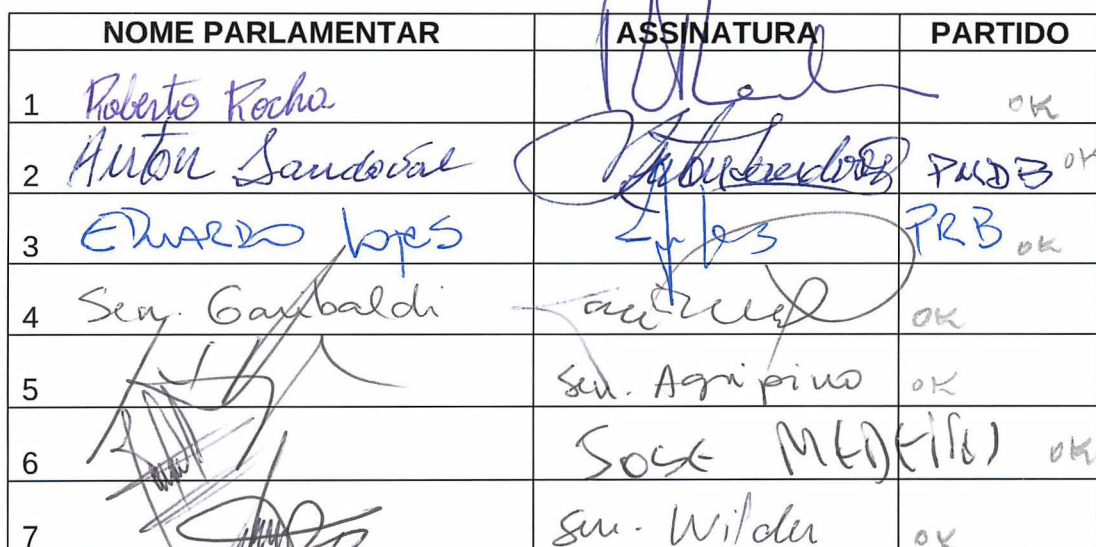 NOME PARLAMENTAR ASSINATURA PARTIDO
1 Roberto Rocha OK
2 Airton Sandoval PMDB OK
3 EDUARDO Lopes PRB OK
4 Sen. Garibaldi OK
5 Sen. Agripino OK
6 JOSE MEDEIROS OK
7 Sen. Wilder OK